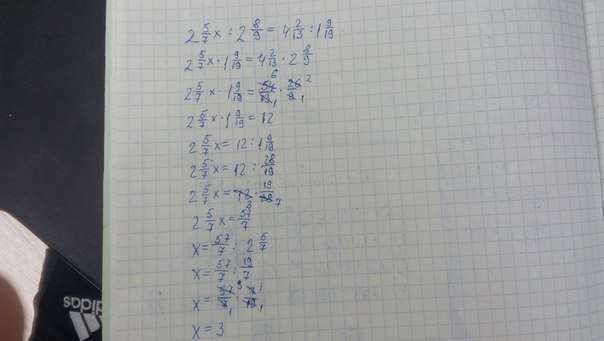 2 5/7 x : 2 8/9 = 4 2/13 : 1 9/19
2 5/7 x · 1 9/19 = 4 2/13 · 2 8/9
2 5/7 x · 1 9/19 = 54/13 · 26/9 6 1 2 1
2 5/7 x · 1 9/19 = 12
2 5/7 x = 12 : 1 9/19
2 5/7 x = 12 : 28/19
2 5/7 x = 12 · 19/28 3 7
2 5/7 x = 57/7
x = 57/7 : 2 5/7
x = 57/7 : 19/7
x = 57/7 · 7/19 3 1 1 1
x = 3
adidas